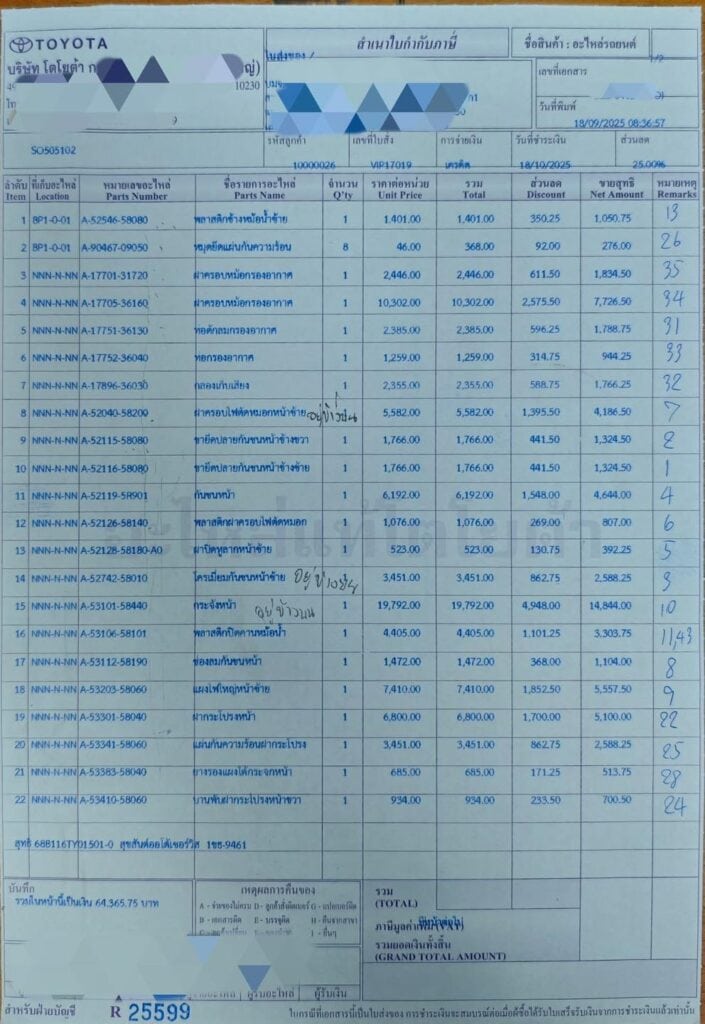 TOYOTA
สำเนาใบกำกับภาษี
ชื่อสินค้า : อะไหล่รถยนต์
บริษัท โตโยต้า ก
ญ่)
10230
ใบส่งของ /
1/2
เลขที่เอกสาร
วันที่พิมพ์
18/09/2025 08:36:57
SO505102
รหัสลูกค้า เลขที่ใบสั่ง การจ่ายเงิน วันที่ชำระเงิน ส่วนลด
10000026 VIP17019 เครดิต 18/10/2025 25.00%
ลำดับ ที่เก็บอะไหล่ หมายเลขอะไหล่ ชื่อรายการอะไหล่ จำนวน ราคาต่อหน่วย รวม ส่วนลด ขายสุทธิ หมายเหตุ
Item Location Parts Number Parts Name Q'ty Unit Price Total Discount Net Amount Remarks
1 8P1-0-01 A-52546-58080 พลาสติกข้างหม้อน้ำซ้าย 1 1,401.00 1,401.00 350.25 1,050.75 13
2 8P1-0-01 A-90467-09050 หมุดยึดแผ่นกันความร้อน 8 46.00 368.00 92.00 276.00 26
3 NNN-N-NN A-17701-31720 ฝาครอบหม้อกรองอากาศ 1 2,446.00 2,446.00 611.50 1,834.50 35
4 NNN-N-NN A-17705-36160 ฝาครอบหม้อกรองอากาศ 1 10,302.00 10,302.00 2,575.50 7,726.50 34
5 NNN-N-NN A-17751-36130 ท่อดักลมกรองอากาศ 1 2,385.00 2,385.00 596.25 1,788.75 31
6 NNN-N-NN A-17752-36040 ท่อกรองอากาศ 1 1,259.00 1,259.00 314.75 944.25 33
7 NNN-N-NN A-17896-36030 กล่องเก็บเสียง 1 2,355.00 2,355.00 588.75 1,766.25 32
8 NNN-N-NN A-52040-58200 ฝาครอบไฟตัดหมอกหน้าซ้าย อยู่ข้างบน 1 5,582.00 5,582.00 1,395.50 4,186.50 7
9 NNN-N-NN A-52115-58080 ขายึดปลายกันชนหน้าข้างขวา 1 1,766.00 1,766.00 441.50 1,324.50 2
10 NNN-N-NN A-52116-58080 ขายึดปลายกันชนหน้าข้างซ้าย 1 1,766.00 1,766.00 441.50 1,324.50 1
11 NNN-N-NN A-52119-5R901 กันชนหน้า 1 6,192.00 6,192.00 1,548.00 4,644.00 4
12 NNN-N-NN A-52126-58140 พลาสติกฝาครอบไฟตัดหมอก 1 1,076.00 1,076.00 269.00 807.00 6
13 NNN-N-NN A-52128-58180-A0 ฝาปิดหูลากหน้าซ้าย 1 523.00 523.00 130.75 392.25 5
14 NNN-N-NN A-52742-58010 โครเมี่ยมกันชนหน้าซ้าย อยู่ข้างบน 1 3,451.00 3,451.00 862.75 2,588.25 3
15 NNN-N-NN A-53101-58440 กระจังหน้า อยู่ข้างบน 1 19,792.00 19,792.00 4,948.00 14,844.00 10
16 NNN-N-NN A-53106-58101 พลาสติกปิดคานหม้อน้ำ 1 4,405.00 4,405.00 1,101.25 3,303.75 11,43
17 NNN-N-NN A-53112-58190 ช่องลมกันชนหน้า 1 1,472.00 1,472.00 368.00 1,104.00 8
18 NNN-N-NN A-53203-58060 แผงไฟใหญ่หน้าซ้าย 1 7,410.00 7,410.00 1,852.50 5,557.50 9
19 NNN-N-NN A-53301-58040 ฝากระโปรงหน้า 1 6,800.00 6,800.00 1,700.00 5,100.00 22
20 NNN-N-NN A-53341-58060 แผ่นกันความร้อนฝากระโปรง 1 3,451.00 3,451.00 862.75 2,588.25 25
21 NNN-N-NN A-53383-58040 ยางรองแผงใต้กระจกหน้า 1 685.00 685.00 171.25 513.75 28
22 NNN-N-NN A-53410-58060 บานพับฝากระโปรงหน้าขวา 1 934.00 934.00 233.50 700.50 24
อะไหล่แท้โตโยต้า
สุทธิ 68B116TY01501-0 สุขสันต์ออโต้เซอร์วิส 1ขธ-9461
บันทึก
รวมในหน้านี้เป็นเงิน 64,365.75 บาท
เหตุผลการคืนของ
A - จ่ายของไม่ครบ D - ลูกค้าสั่งผิดเบอร์ G - แปลเบอร์ผิด
B - เอกสารผิด E - บรรจุผิด H - คืนจากสาขา
I - อื่นๆ
รวม
(TOTAL)
ภาษีมูลค่าเพิ่ม (VAT)
รวมยอดเงินทั้งสิ้น
(GRAND TOTAL AMOUNT)
ผู้รับอะไหล่ ผู้รับเงิน
สำหรับฝ่ายบัญชี R 25599
ในกรณีที่เอกสารนี้เป็นใบส่งของ การชำระเงินจะสมบูรณ์ต่อเมื่อผู้ซื้อได้รับใบเสร็จรับเงินจากการชำระเงินแล้วเท่านั้น